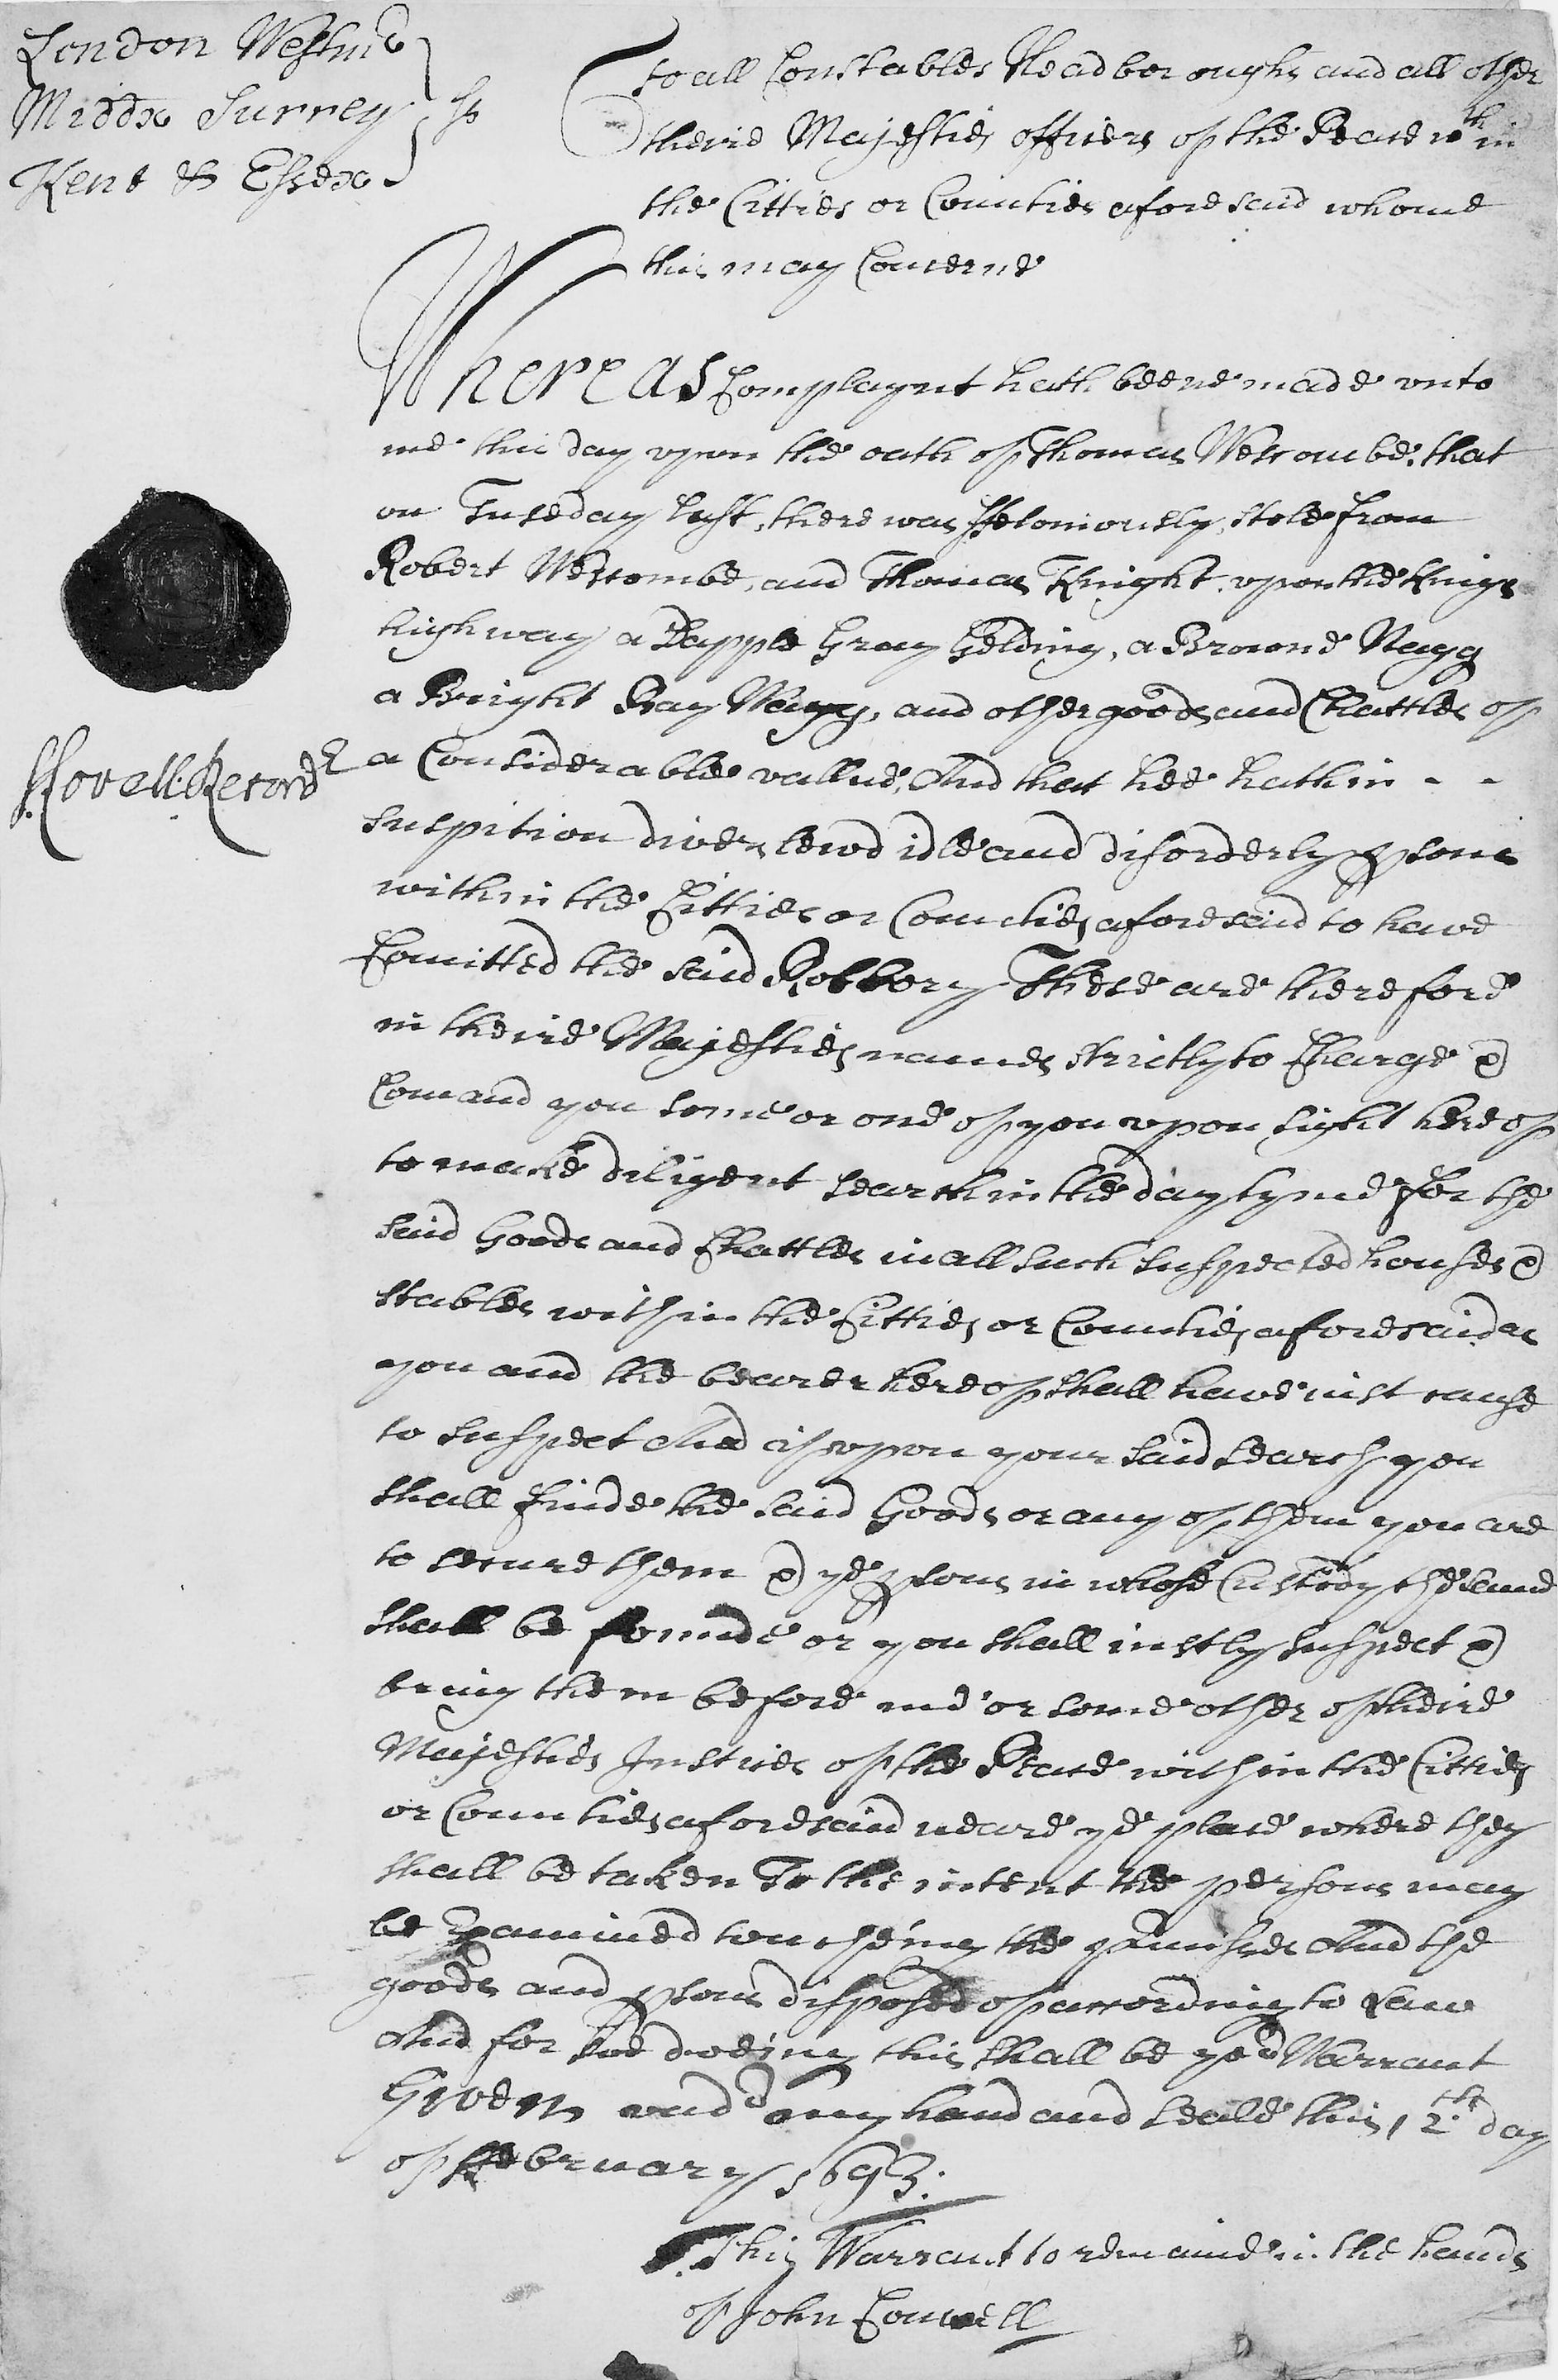 London Westmr
Middx Surrey ss
Kent & Essex
To all Constables Headboroughs and all other
theire Majesties officers of the Peace wth in
the Citties or Counties aforesaid whome
this may Concerne
Whereas Complaynt hath beene made vnto
me this day vpon the oath of Thomas Wescombe, that
on Tuseday last, there was ffeloniously stole from
Robert Wescombe, and Thomas Knight, vpon the Kings
highway a Dapple Gray Gelding, a Browne Nagg
a Bright Bay Nagg, and other goods and Chattles of
a Considerable vallue, And that hee hath in - -
S: Lovell: Recordr
suspition divers lewd idle and disorderly psons
within the Citties or Counties aforesaid to have
Comitted the said Robbory These are therefore
in theire Majesties names strictly to Charge &
Comand you some or one of you vpon sight hereof
to make diligent search in the day tyme for the
said Goods and Chattles in all such suspected houses &
stables within the Citties or Counties aforesaid as
you and the bearer hereof shall have iust cause
to suspect And if vpon your said search you
shall finde the said Goods or any of them you are
to secure them & ye psons in whose Custody the same
shall be founde or you shall iustly suspect &
bring them before me or some other of theire
Majesties Justices of the Peace within the Citties
or Counties aforesaid neare ye place where they
shall be taken To the intent the persons may
be Examined toucheing the pmisses And the
goods and psons disposed of according to Law
And for soe doeing this shall be yor Warrant
Given vndr my hand and Seale this 12th day
of ffebruary 1693:
This Warrant to remaine in the hands
of John Connell